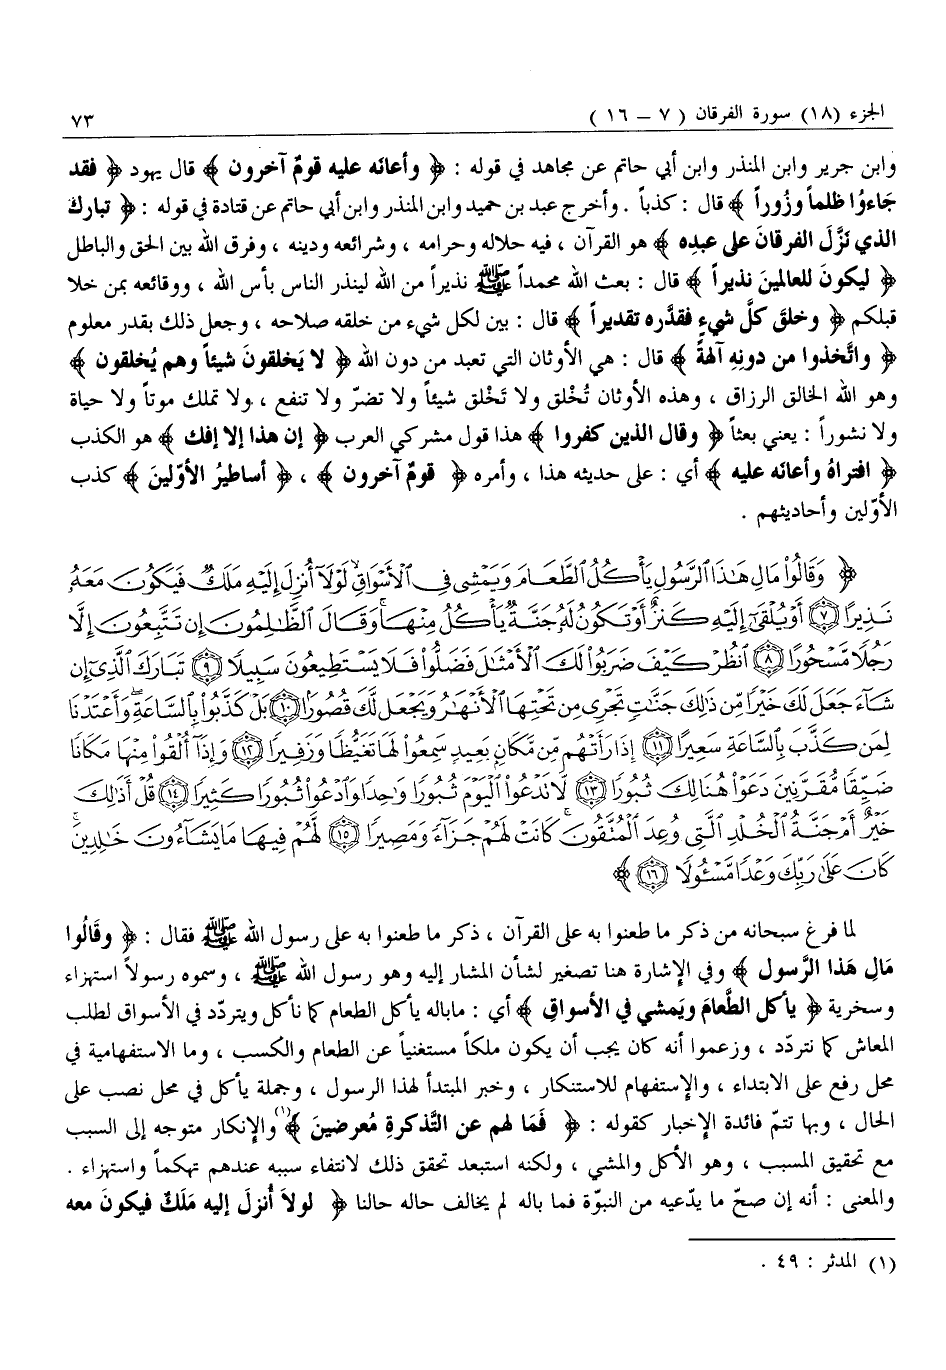 الجزء (١٨) سورة الفرقان ( ٧ – ١٦ ) ٧٣
وابن جرير وابن المنذر وابن أبي حاتم عن مجاهد في قوله : ﴿ وأعانه عليه قومٌ آخرون ﴾ قال يهود ﴿ فقد
جَاءوُا ظلماً وزُوراً ﴾ قال : كذباً . وأخرج عبد بن حميد وابن المنذر وابن أبي حاتم عن قتادة في قوله : ﴿ تباركَ
الذي نَزَّلَ الفرقانَ على عبدِه ﴾ هو القرآن ، فيه حلاله وحرامه ، وشرائعه ودينه ، وفرق الله بين الحق والباطل
﴿ ليكونَ للعالمينَ نذيراً ﴾ قال : بعث الله محمداً ﷺ نذيراً من الله لينذر الناس بأس الله ، ووقائعه بمن خلا
قبلكم ﴿ وخلقَ كلَّ شيءٍ فقدَّره تقديراً ﴾ قال : بين لكل شيء من خلقه صلاحه ، وجعل ذلك بقدر معلوم
﴿ واتَّخذوا من دونِه آلهةً ﴾ قال : هي الأوثان التي تعبد من دون الله ﴿ لا يَخلقونَ شيئاً وهم يُخلقون ﴾
وهو الله الخالق الرزاق ، وهذه الأوثان تُخْلق ولا تَخْلق شيئاً ولا تضرّ ولا تنفع ، ولا تملك موتاً ولا حياة
ولا نشوراً : يعني بعثاً ﴿ وقال الذين كفروا ﴾ هذا قول مشركي العرب ﴿ إن هذا إلا إفك ﴾ هو الكذب
﴿ افتراهُ وأعانَه عليه ﴾ أي : على حديثه هذا ، وأمره ﴿ قومٌ آخرون ﴾ ، ﴿ أساطيرُ الأوّلينَ ﴾ كذب
الأوّلين وأحاديثهم .
﴿ وَقَالُواْ مَالِ هَٰذَا ٱلرَّسُولِ يَأْكُلُ ٱلطَّعَامَ وَيَمْشِى فِى ٱلْأَسْوَاقِ لَوْلَآ أُنزِلَ إِلَيْهِ مَلَكٌ فَيَكُونَ مَعَهُۥ
نَذِيرًا ۝٧ أَوْ يُلْقَىٰٓ إِلَيْهِ كَنزٌ أَوْ تَكُونُ لَهُۥ جَنَّةٌ يَأْكُلُ مِنْهَا وَقَالَ ٱلظَّٰلِمُونَ إِن تَتَّبِعُونَ إِلَّا
رَجُلًا مَّسْحُورًا ۝٨ ٱنظُرْ كَيْفَ ضَرَبُواْ لَكَ ٱلْأَمْثَٰلَ فَضَلُّواْ فَلَا يَسْتَطِيعُونَ سَبِيلًا ۝٩ تَبَارَكَ ٱلَّذِىٓ إِن
شَآءَ جَعَلَ لَكَ خَيْرًا مِّن ذَٰلِكَ جَنَّٰتٍ تَجْرِى مِن تَحْتِهَا ٱلْأَنْهَٰرُ وَيَجْعَل لَّكَ قُصُورًا ۝١٠ بَلْ كَذَّبُواْ بِٱلسَّاعَةِ وَأَعْتَدْنَا
لِمَن كَذَّبَ بِٱلسَّاعَةِ سَعِيرًا ۝١١ إِذَا رَأَتْهُم مِّن مَّكَانٍ بَعِيدٍ سَمِعُواْ لَهَا تَغَيُّظًا وَزَفِيرًا ۝١٢ وَإِذَآ أُلْقُواْ مِنْهَا مَكَانًا
ضَيِّقًا مُّقَرَّنِينَ دَعَوْاْ هُنَالِكَ ثُبُورًا ۝١٣ لَّا تَدْعُواْ ٱلْيَوْمَ ثُبُورًا وَٰحِدًا وَٱدْعُواْ ثُبُورًا كَثِيرًا ۝١٤ قُلْ أَذَٰلِكَ
خَيْرٌ أَمْ جَنَّةُ ٱلْخُلْدِ ٱلَّتِى وُعِدَ ٱلْمُتَّقُونَ كَانَتْ لَهُمْ جَزَآءً وَمَصِيرًا ۝١٥ لَّهُمْ فِيهَا مَا يَشَآءُونَ خَٰلِدِينَ
كَانَ عَلَىٰ رَبِّكَ وَعْدًا مَّسْـُٔولًا ۝١٦ ﴾
لما فرغ سبحانه من ذكر ما طعنوا به على القرآن ، ذكر ما طعنوا به على رسول الله ﷺ فقال : ﴿ وقَالُوا
مَالِ هَذا الرَّسول ﴾ وفي الإشارة هنا تصغير لشأن المشار إليه وهو رسول الله ﷺ ، وسموه رسولاً استهزاء
وسخرية ﴿ يأكل الطَّعامَ ويَمشي في الأسواقِ ﴾ أي : ماباله يأكل الطعام كما نأكل ويتردّد في الأسواق لطلب
المعاش كما نتردّد ، وزعموا أنه كان يجب أن يكون ملكاً مستغنياً عن الطعام والكسب ، وما الاستفهامية في
محل رفع على الابتداء ، والإستفهام للاستنكار ، وخبر المبتدأ لهذا الرسول ، وجملة يأكل في محل نصب على
الحال ، وبها تتمّ فائدة الإخبار كقوله : ﴿ فَمَا لهم عن التَّذكرةِ مُعرضينَ ﴾(١) والإنكار متوجه إلى السبب
مع تحقيق المسبب ، وهو الأكل والمشي ، ولكنه استبعد تحقق ذلك لانتفاء سببه عندهم تهكماً واستهزاء .
والمعنى : أنه إن صحّ ما يدّعيه من النبوّة فما باله لم يخالف حاله حالنا ﴿ لولاَ أُنزلَ إليه مَلَكٌ فيكونَ معه
(١) المدثر : ٤٩ .